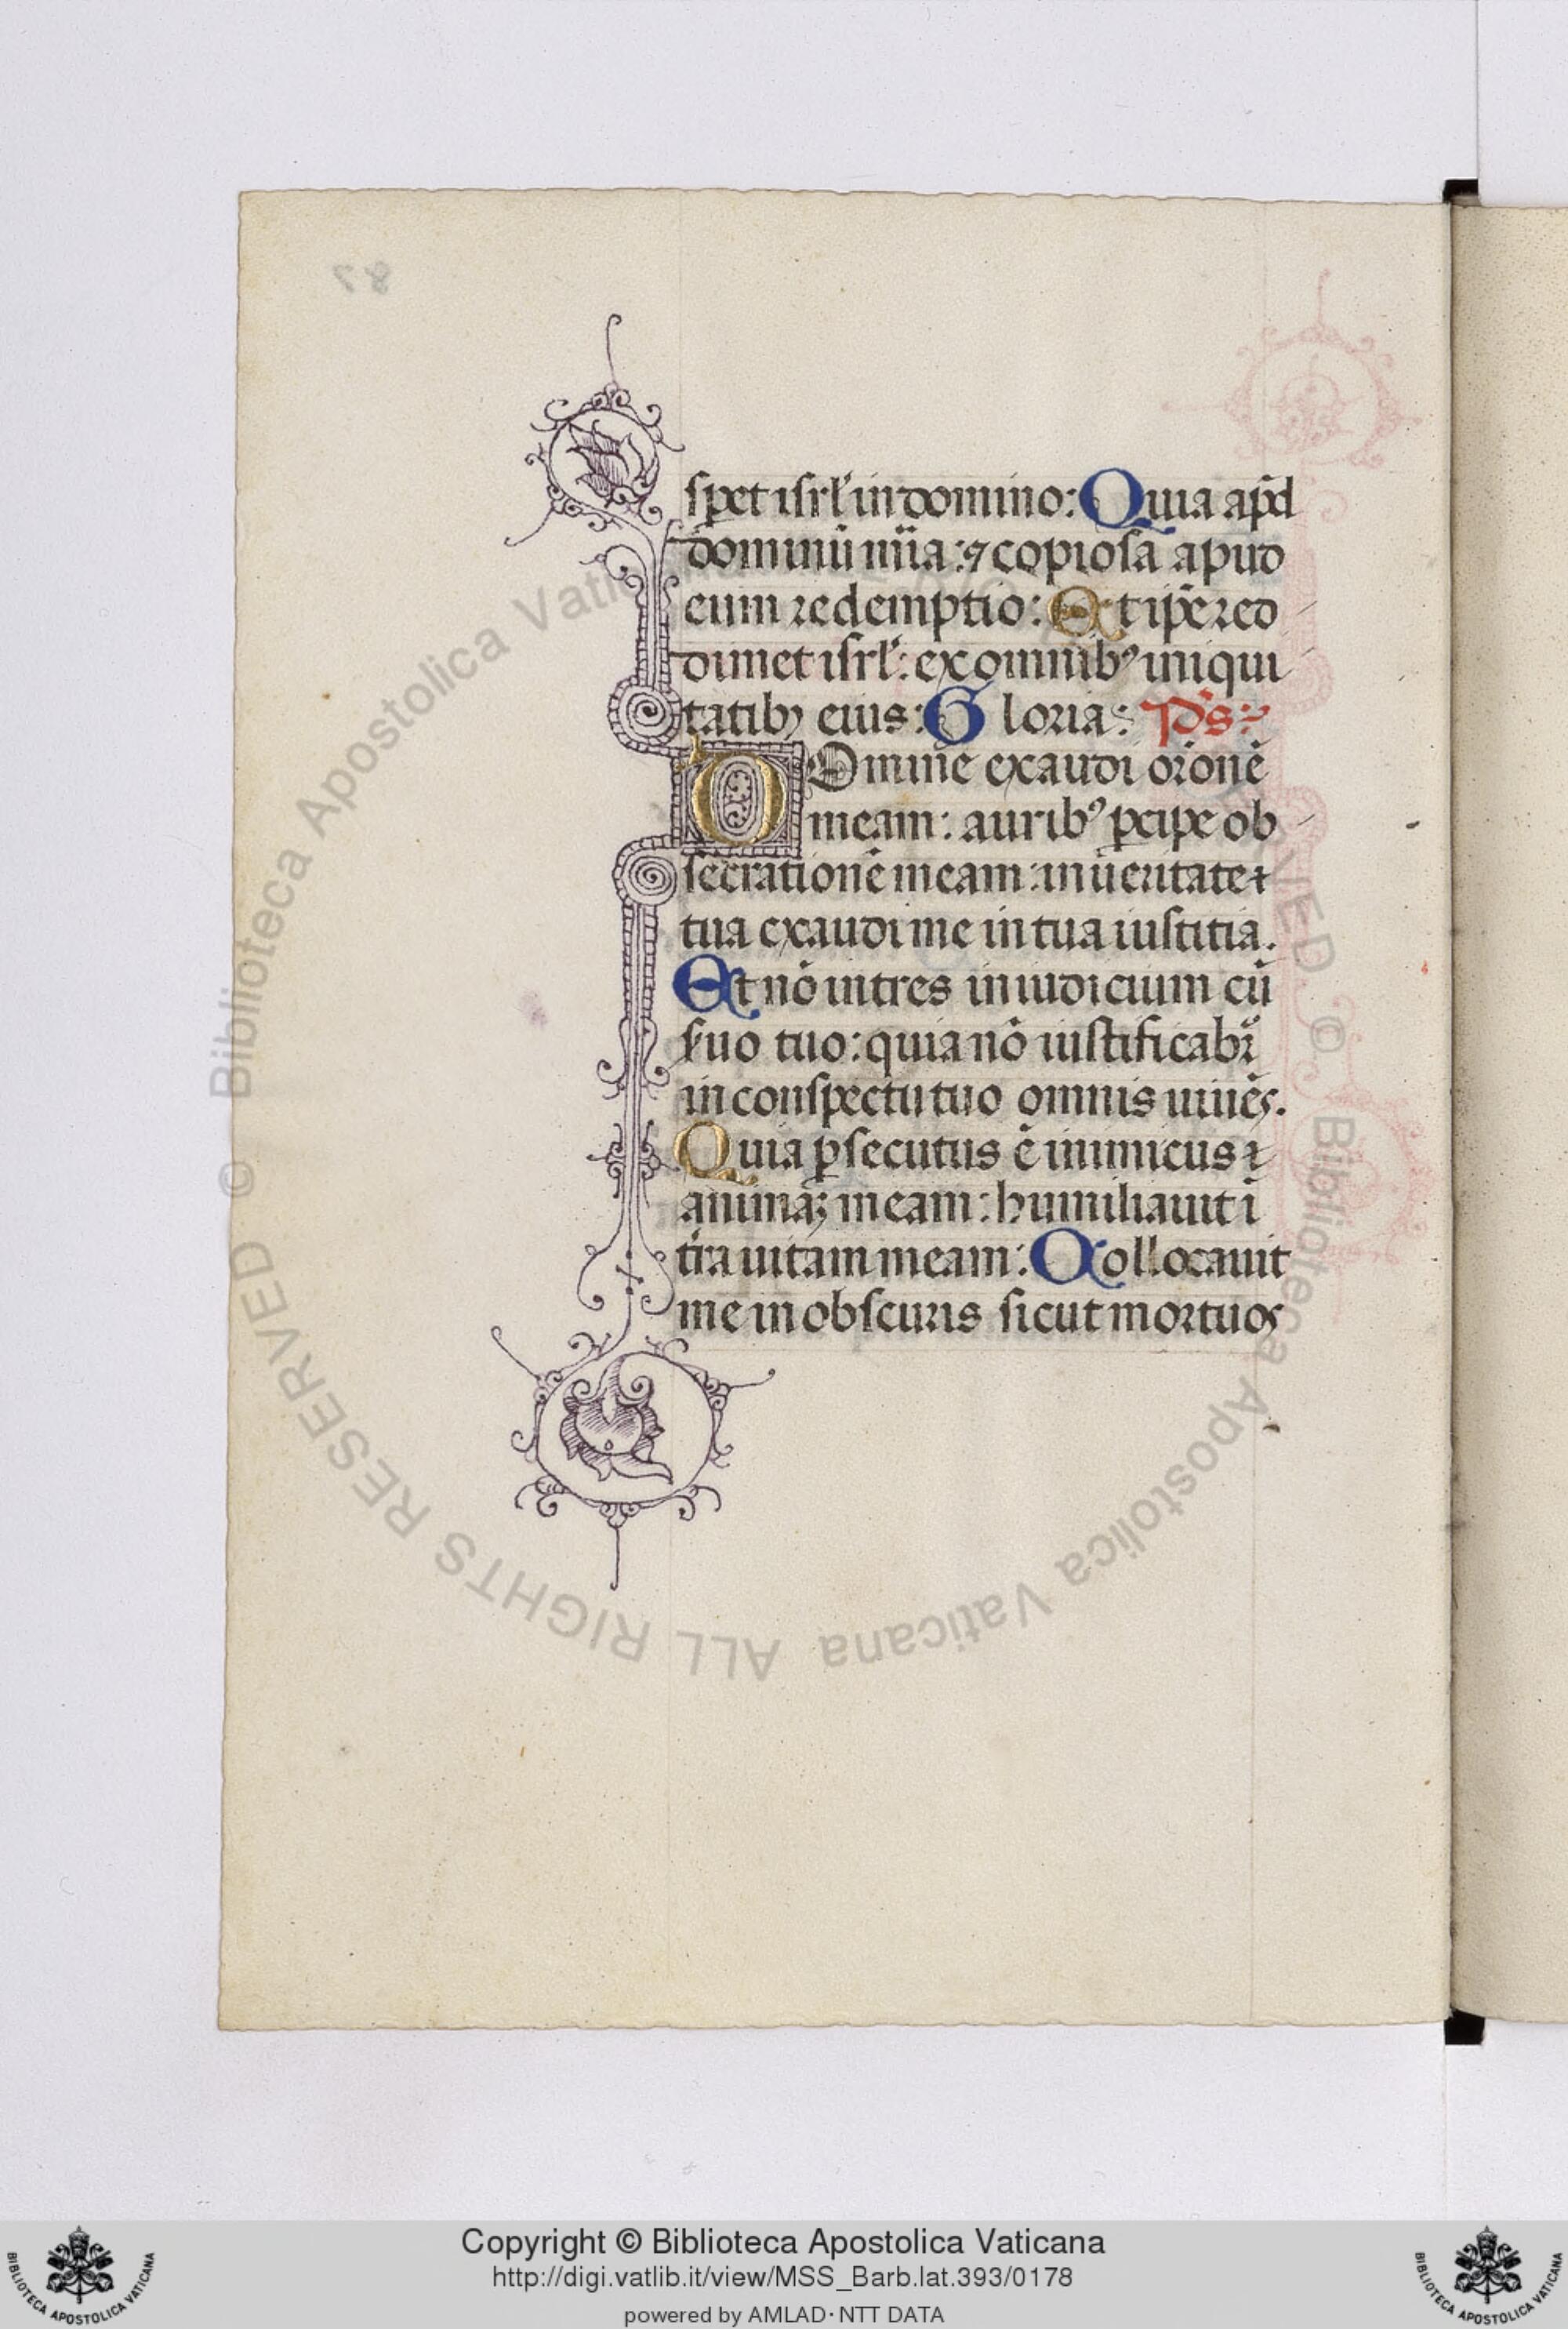 spet isrl' in domino: Quia apd̄
dominū mīa: ⁊ copiosa apud
eum redemptio: Et ip̄e red
dimet isrl': ex omnibꝰ iniqui
tatibꝫ eius: Gloria: Ps:
DOmine exaudi or̄onē
meam: auribꝰ ꝑcipe ob
secrationē meam: in ueritate
tua exaudi me in tua iustitia.
Et nō intres in iudicium cū
s̄uo tuo: quia nō iustificabr̄
in conspectu tuo omnis uiuēs.
Quia ꝑsecutus ē inimicus
animāꝫ meam: humiliauit ī
t̄ra uitam meam: Collocauit
me in obscuris sicut mortuos
© Biblioteca Apostolica Vaticana ALL RIGHTS RESERVED © Biblioteca Apostolica Vaticana ALL RIGHTS RESERVED
Copyright © Biblioteca Apostolica Vaticana
http://digi.vatlib.it/view/MSS_Barb.lat.393/0178
powered by AMLAD·NTT DATA
BIBLIOTECA APOSTOLICA VATICANA
BIBLIOTECA APOSTOLICA VATICANA